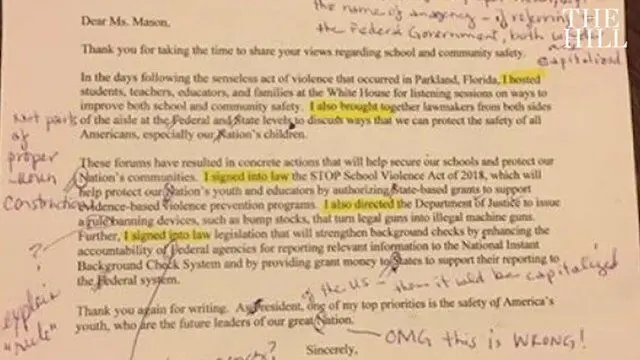 the name of an agency - if referring to
the Federal Government, both
capitalized
THE
HILL
Dear Ms. Mason,
Thank you for taking the time to share your views regarding school and community safety.
In the days following the senseless act of violence that occurred in Parkland, Florida, I hosted
students, teachers, educators, and families at the White House for listening sessions on ways to
improve both school and community safety. I also brought together lawmakers from both sides
of the aisle at the Federal and State levels to discuss ways that we can protect the safety of all
Americans, especially our Nation's children.
Not part
of
proper
noun
construction
These forums have resulted in concrete actions that will help secure our schools and protect our
Nation's communities. I signed into law the STOP School Violence Act of 2018, which will
help protect our Nation's youth and educators by authorizing State-based grants to support
evidence-based violence prevention programs. I also directed the Department of Justice to issue
a rule banning devices, such as bump stocks, that turn legal guns into illegal machine guns.
Further, I signed into law legislation that will strengthen background checks by enhancing the
accountability of Federal agencies for reporting relevant information to the National Instant
Background Check System and by providing grant money to States to support their reporting to
the Federal system.
?
explain
"rule"
of the US - then it would be capitalized
Thank you again for writing. As President, one of my top priorities is the safety of America's
youth, who are the future leaders of our great Nation.
OMG this is WRONG!
Sincerely,